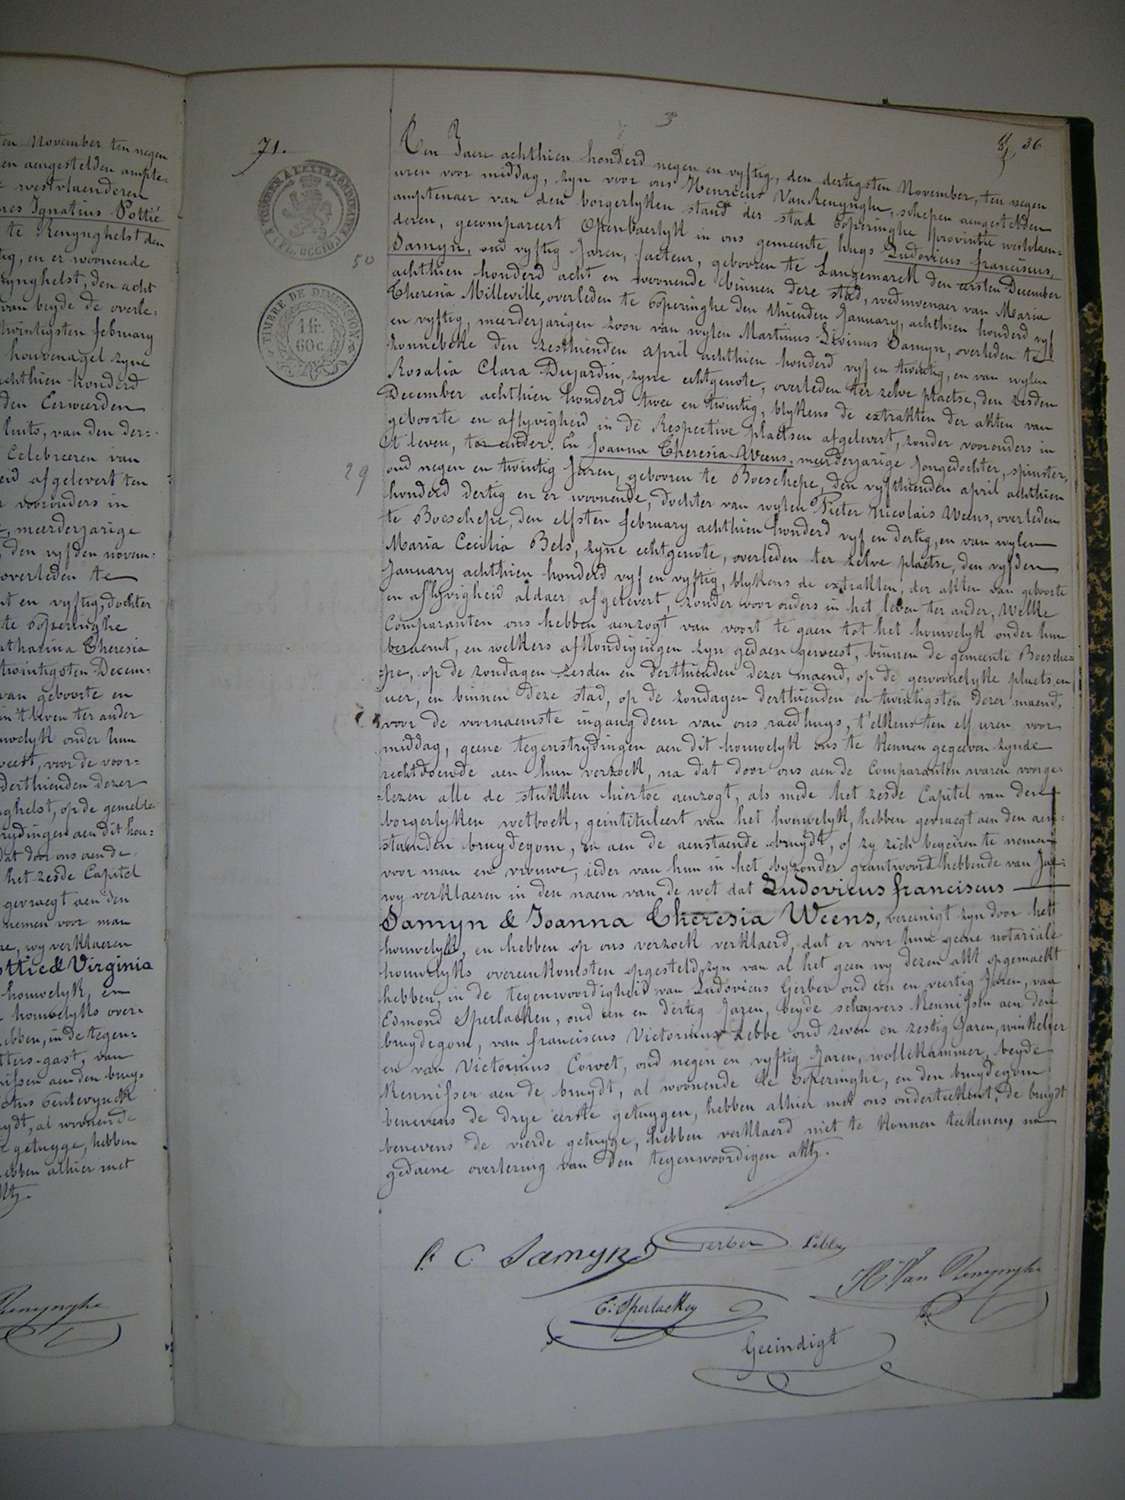 ten November ten negen
en aengestelden ampte-
westvlaenderen
Ignatius Pottié
te Renynghelst den
en er woonende
Renynghelst, den acht
van beyde de overle-
twintigsten february
houvenagel zyne
achthien honderd
den Eerweerden
van den der-
Celebreeren van
afgelevert ten
voorouders in
meerderjarige
den vyfden novem-
overleden te
en vyftig, dochter
te Poperinghe
Catharina Theresia
twintigsten Decem-
van geboorte en
in 't leven ter ander
houwelyk onder hun
geweest, voor de voor-
derthienden dezer
op de gemelde
aen dit hou-
dat door ons aen de
het zesde Capitel
gevraegt aen den
nemen voor man
wy verklaeren
Pottié & Virginia
houwelyk, en
houwelyks over-
hebben, in de tegen-
gast, van
Kennissen aen den bruy-
Gentevynck
al woonende
getuyge, hebben
hebben alhier met
akt.
71.
3
36
TIMBRE A L'EXTRAORDINAIRE
TIMBRE DE DIMENSION
1 fr. 60 c.
50
29
Ten Jaere achthien honderd negen en vyftig, den dertigsten November, ten negen
uren voor middag, zyn voor ons Henricus VanRenynghe, schepen aengestelden
amptenaer van den borgerlyken stand der stad Poperinghe provintie westvlaen-
deren, gecompareert Openbaerlyk in ons gemeente huys Ludovicus franciscus
Samyn, oud vyftig Jaren, facteur, gebooren te Langemarck den eersten December
achthien honderd acht en woonende binnen deze stad, weduwenaer van Maria
Theresia Milleville, overleden te Poperinghe den thienden January, achthien honderd vyf
en vyftig, meerderjarigen zoon van wylen Martinus Livinus Samyn, overleden te
Zonnebeke den zesthienden april achthien honderd vyf en twintig, en van wylen
Rosalia Clara Dujardin, zyne echtgenote, overleden ter zelve plaetse, den zesden
December achthien honderd twee en twintig, blykens de extrakten der akten van
geboorte en aflyvigheid in de Respective plaetsen afgelevert, zonder voorouders in
't leven, ter ander. En Joanna Theresia Weens, meerderjarige Jongedochter, spinster,
oud negen en twintig Jaren, gebooren te Boeschepe, den vyfthienden april achthien
honderd dertig en er woonende, dochter van wylen Pieter Nicolais Weens, overleden
te Boeschepe, den elfsten february achthien honderd vyf en dertig, en van wylen
Maria Cecilia Bels, zyne echtgenote, overleden ter zelve plaetse, den vyfden
January achthien honderd vyf en vyftig, blykens de extrakten, der akten van geboorte
en aflyvigheid aldaer afgelevert, zonder voor ouders in het leven ter ander, Welke
Comparanten ons hebben aenzogt van voort te gaen tot het houwelyk onder hun
beraemt, en welkers afkondigingen zyn gedaen geweest, binnen de gemeente Boesche-
pe, op de zondagen zesden en derthienden dezer maend, op de gewoonelyke plaets en
uer, en binnen deze stad, op de zondagen derthienden en twintigsten dezer maend,
voor de voornaemste ingangdeur van ons raedhuys, t'elkens ten elf uren voor
middag, geene tegenstrydingen aen dit houwelyk ons te kennen gegeeven zynde
rechtdoende aen hun verzoek, na dat door ons aen de Comparanten waren voorge-
lezen alle de stukken hiertoe aenzogt, als mede het zesde Capitel van den
borgerlyken wetboek, geintituleert van het houwelyk, hebben gevraegt aen den aen-
staenden bruydegom, en aen de aenstaende bruydt, of zy zich begeiren te nemen
voor man en vrouwe, ieder van hun in het byzonder geantwoord hebbende van Ja,
wy verklaeren in den naem van de wet dat Ludovicus franciscus
Samyn & Joanna Theresia Weens, vereenigt zyn door het
houwelyk, en hebben op ons verzoek verklaerd, dat er voor hun geene notariale
houwelyks overeenkomsten opgesteld zyn van al het geen wy dezen akt opgemaekt
hebben, in de tegenwoordigheid van Ludovicus Gerber oud een en veertig Jaren, van
Edmond Sperlaeken, oud een en dertig Jaren, beyde schryvers Kennissen aen den
bruydegom, van franciscus Victorinus Lebbe oud zeven en zestig Jaren, winkelier
en van Victorinus Corvet, oud negen en vyftig Jaren, wollekammer, beyde
Kennissen aen de bruydt, al woonende te Poperinghe, en den bruydegom
benevens de drye eerste getuygen, hebben alhier met ons onderteekent, de bruydt
benevens de vierde getuyge, hebben verklaerd niet te konnen teekenen, na
gedaene overlezing van den tegenwoordigen akt.
Samyn
Gerber
Lebbe
H. Van Renynghe
E. Sperlaeken
Geëindigt
Renynghe